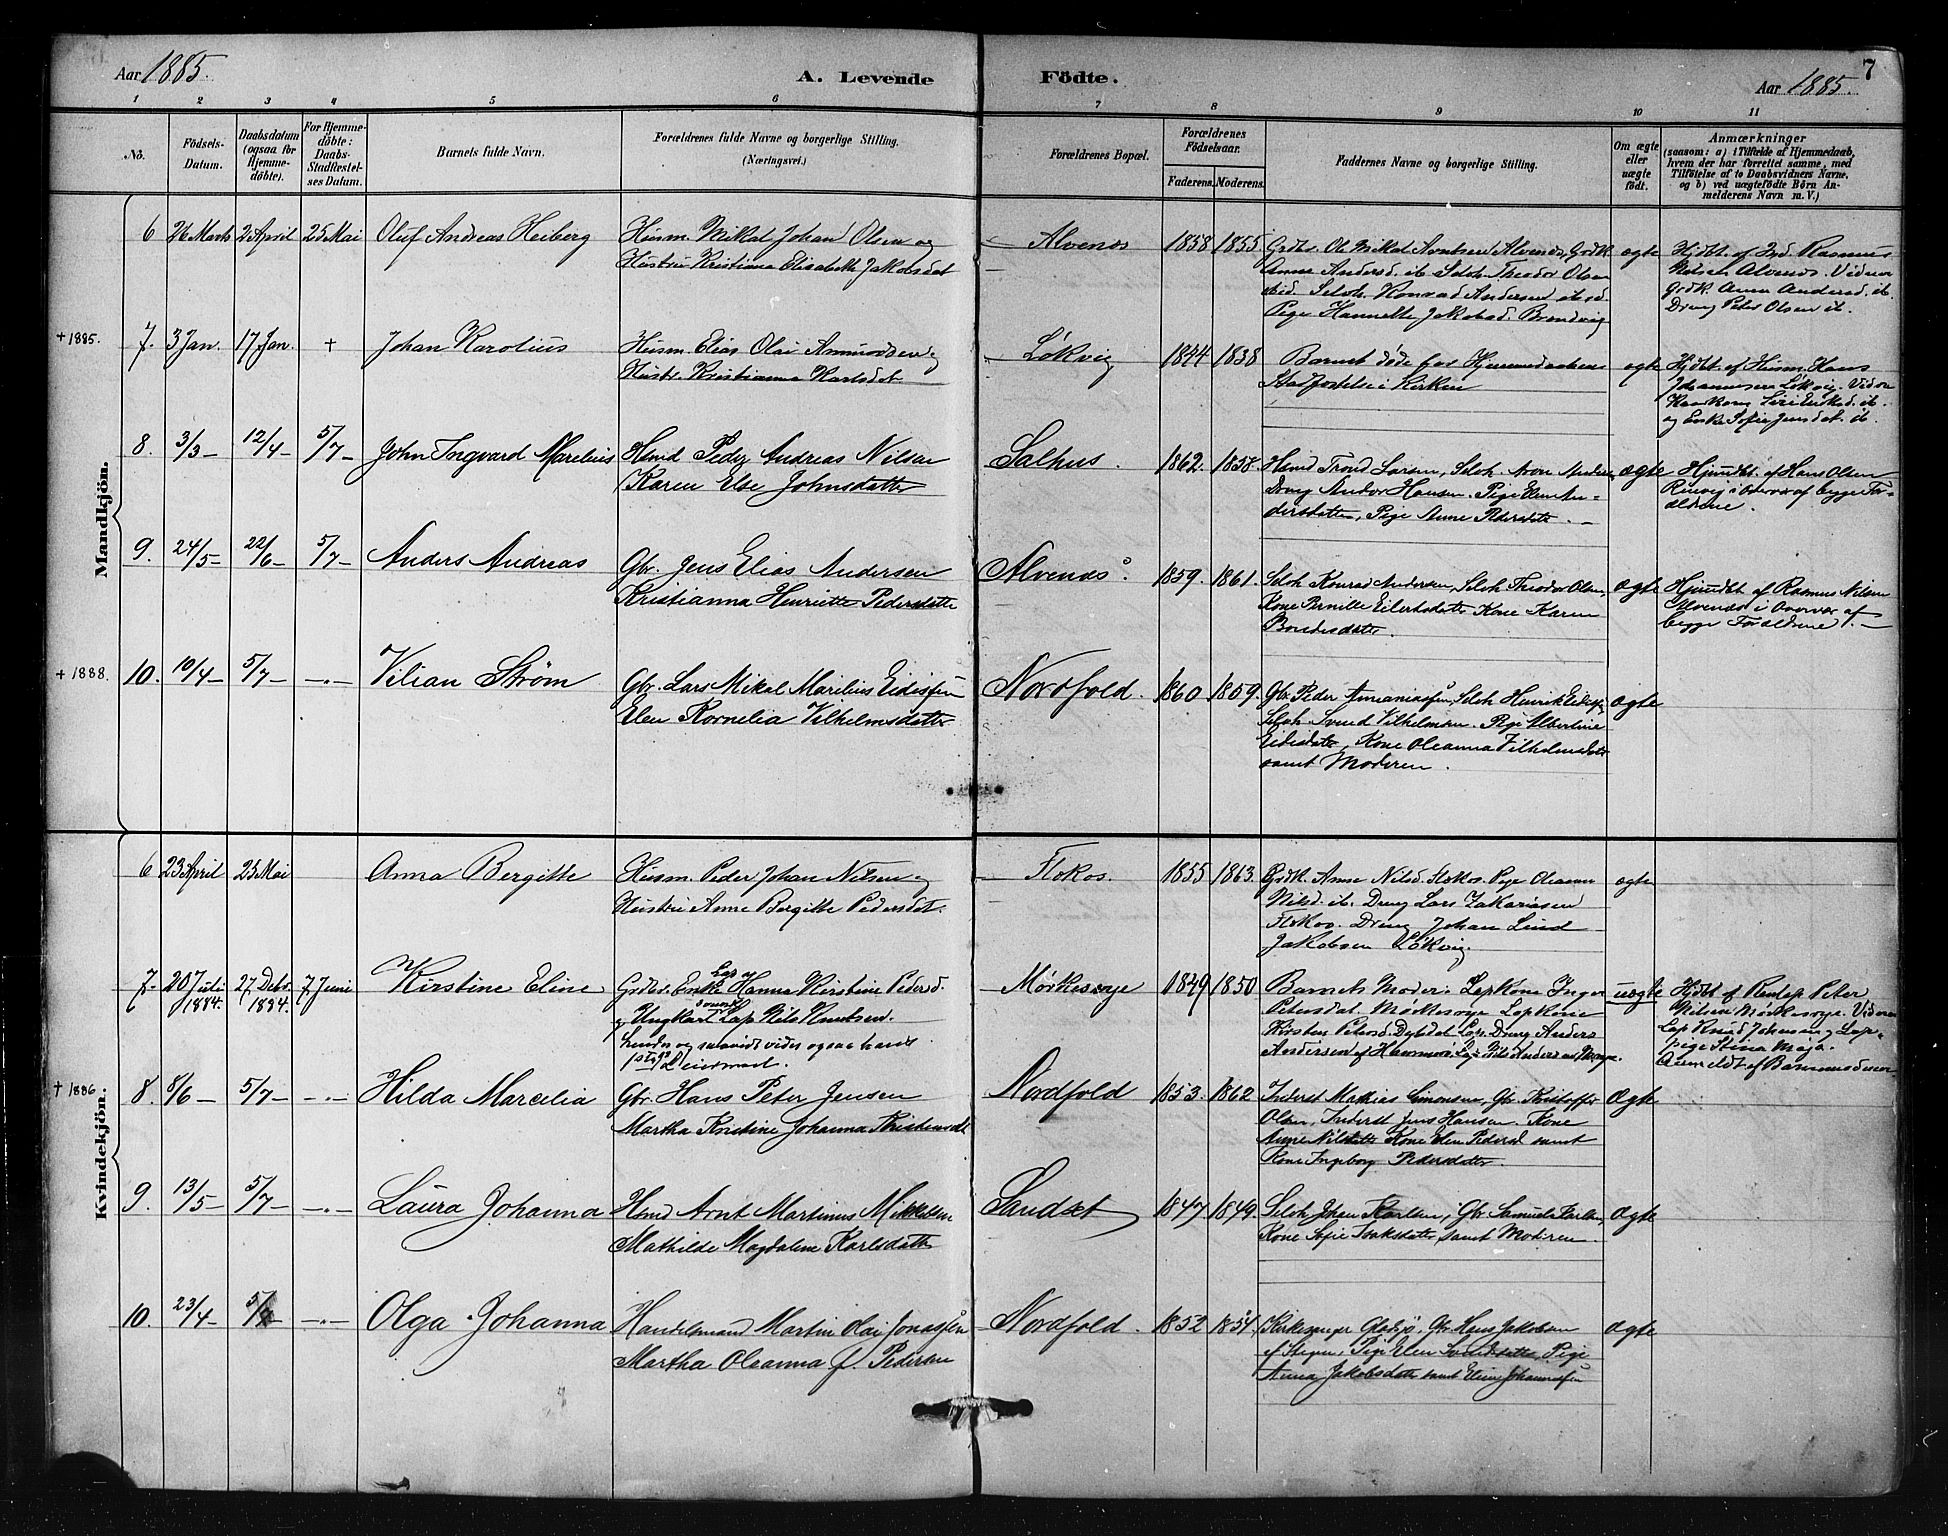 Aar 1885.
A. Levende
Födte.
7
Aar 1885.
1 2 3 4 5 6 7 8 9 10 11
No.
Födsels-Datum.
Daabsdatum (ogsaa for Hjemme-döbte).
For Hjemme-döbte: Daabs-Stadfæstel-ses Datum.
Barnets fulde Navn.
Forældrenes fulde Navne og borgerlige Stilling. (Næringsvei.)
Forældrenes Bopæl.
Forældrenes Födselsaar.
Faderens. Moderens.
Faddernes Navne og borgerlige Stilling.
Om ægte eller uægte födt.
Anmærkninger
(saasom: a) i Tilfælde af Hjemmedaab, hvem der har forrettet samme, med Tilföielse af to Daabsvidners Navne, og b) ved uægtefödte Börn An-melderens Navn m. V.)
Mandkjön.
6 26 Marts 2 April 25 Mai Oluf Andreas Heiberg
Husm. Mikal Johan Olsen og
Hustru Kristiana Elisabeth Jakobsdat
Alvenes 1858 1855
Grdbr. Ole Mikal Arntsen Alvenes, Grdk.
Anne Andersd. ib. Selvh. Theodor Olsen
sted. Selvh. Konrad Andersen ibid.
Pige Hannette Jakobsd. Brandvig
ægte
Hjdbt. af Ind. Rasmus
Nilsen Alvenes. Vidner
Grdk. Anne Andersd. ib.
Dreng Peter Olsen ib.
+ 1885. 7. 3 Jan. 17 Jan. + Johan Karolius
Husm. Elias Olai Amundsen og
Hustr. Kristianna Karlsdat.
Løkvig 1844 1838
Barnet døde før Hjemmedaabens
Stadfæstelse i Kirken
ægte
Hjdbt. af Husm. Hans
Johannesen Løkvig. Vidne
og Enke Sofie Jensdat. ib.
8. 3/3 - 12/4 - 5/7 - John Ingvard Marelius
Hsmd Peder Andreas Nilsen
Karen Else Johnsdatter
Salhus. 1862. 1858.
Hsmd Trond Larsen, Selvh. Aron Anders
Dreng Andor Hansen. Pige Elen An-
dersdatter, Pige Anne Pedersdatr. -
ægte
Hjemdbt. af Hans Olsen
Rinvig i Overvær af begge For-
ældrene.
9. 24/5 - 22/6 - 5/7 - Anders Andreas
Gbr. Jens Elias Andersen
Kristianna Henriette Pedersdatter
Alvenæs. 1859. 1861.
Selvh Konrad Andersen, Selvh Theodor Olsen,
Kone Pernille Eilertsdatter Kone Karen
Bendesdatter.
ægte
Hjemdbt af Rasmus Nilsen
Alvenæs i Overvær af
begge Forældrene. -
+ 1888. 10. 10/4 - 5/7 - -"- Vilian Strøm
Gbr. Lars Mikal Marelius Eidissen
Elen Kornelia Vilhelmsdatter
Nordfold. 1860 1859.
Gbr Peder Amaniassen, Selvh Henrik Eidisen
Selvh Svend Vilhelmsen. Pige Albertine
Eidisdatter, Kone Oleanna Vilhelmsdatter
samt Moderen.
ægte
Kvindekjön.
6 23 April 25 Mai Anna Bergitte
Husm. Peder Johan Nilsen og
Hustru Anne Bergitte Pedersdat.
Flokos. 1855 1863.
Grdk. Anne Nilsd. Flokos. Pige Oleanna
Nilsd. ib. Dreng Lars Zakariasen
Flokos. Dreng Johan Lind
Jakobsen Løkvig.
ægte
7. 20 Juli 1884. 27 Debr. 1884. 7 Juni Kirstine Eline
Grdbr. Enke Lap Hanna Kirstine Pedersd.
og Ungkarl svensk Lap Nils Knutsen.
hendes og saavidt vides ogsaa hans
1ste Leiermaal.
Mørkesvye 1849 1850
Barnets Moder. Lapkone Inger
Petersdat. Mørkesvye Lapkone
Kirsten Petersd. Dybdal Lap. Dreng Anders
Andersen
uægte
Hjdbt. af Renlap Peter
Nilsen Mørkesvye. Vidner
Lap Knud Johnsen og Lap-
pige Stina Maja.
Anmeldt af Barnemoderen
+ 1886 8. 8/6 - 5/7 - -"- Hilda Marcelia
Gbr. Hans Peter Jensen
Martha Kristine Johanna Kristensdt
Nordfold 1853. 1862
Inderst Mathias Simonsen, Gbr. Kristoffer
Olsen, Inderst Jens Hansen. Kone
Anne Nilsdatter Kone Elen Pedersd samt
Kone Ingeborg Pedersdatter.
ægte
9. 13/5 - 5/7 - -"- Laura Johanna
Hsmd Arnt Martinus Mikkelsen
Mathilde Magdalene Karlsdatter
Sandset 1847 1849.
Selvh. Johan Karlsen, Gbr Samuel Karlsen,
Kone Sofie Isaksdatter, samt Moderen.
ægte
10. 23/4 - 5/7 - -"- Olga Johanna
Handelsmand Martin Olai Jonassen
Martha Oleanna f. Pedersen
Nordfold. 1852 1854
Kirkesanger Gladsjø. Gbr. Hans Jakobsen
af Steyen, Pige Elen Svendsdatter, Pige
Anna Jakobsdatter samt Elen Johannesen
ægte